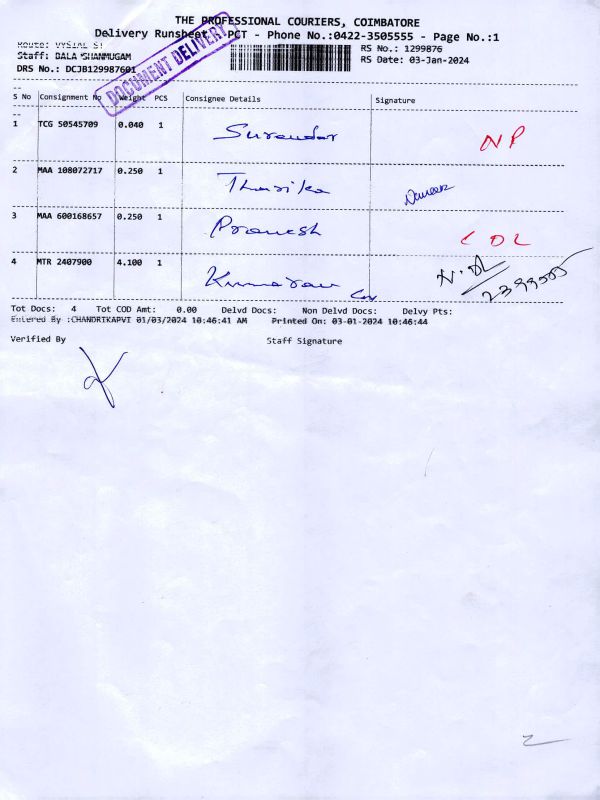 THE PROFESSIONAL COURIERS, COIMBATORE
Delivery Runsheet - PCT - Phone No.:0422-3505555 - Page No.:1
DOCUMENT DELIVERY
Route: VYSIAL ST
RS No.: 1299876
Staff: BALA SHANMUGAM
RS Date: 03-Jan-2024
DRS No.: DCJB129987601
S No Consignment No Weight PCS Consignee Details Signature
1 TCG 50545709 0.040 1 Surendar NP
2 MAA 108072717 0.250 1 Tharika
3 MAA 600168657 0.250 1 Pranesh CDL
4 MTR 2407900 4.100 1 Kumaran
Tot Docs: 4 Tot COD Amt: 0.00 Delvd Docs: Non Delvd Docs: Delvy Pts:
Entered By :CHANDRIKAPVI 01/03/2024 10:46:41 AM Printed On: 03-01-2024 10:46:44
Verified By Staff Signature